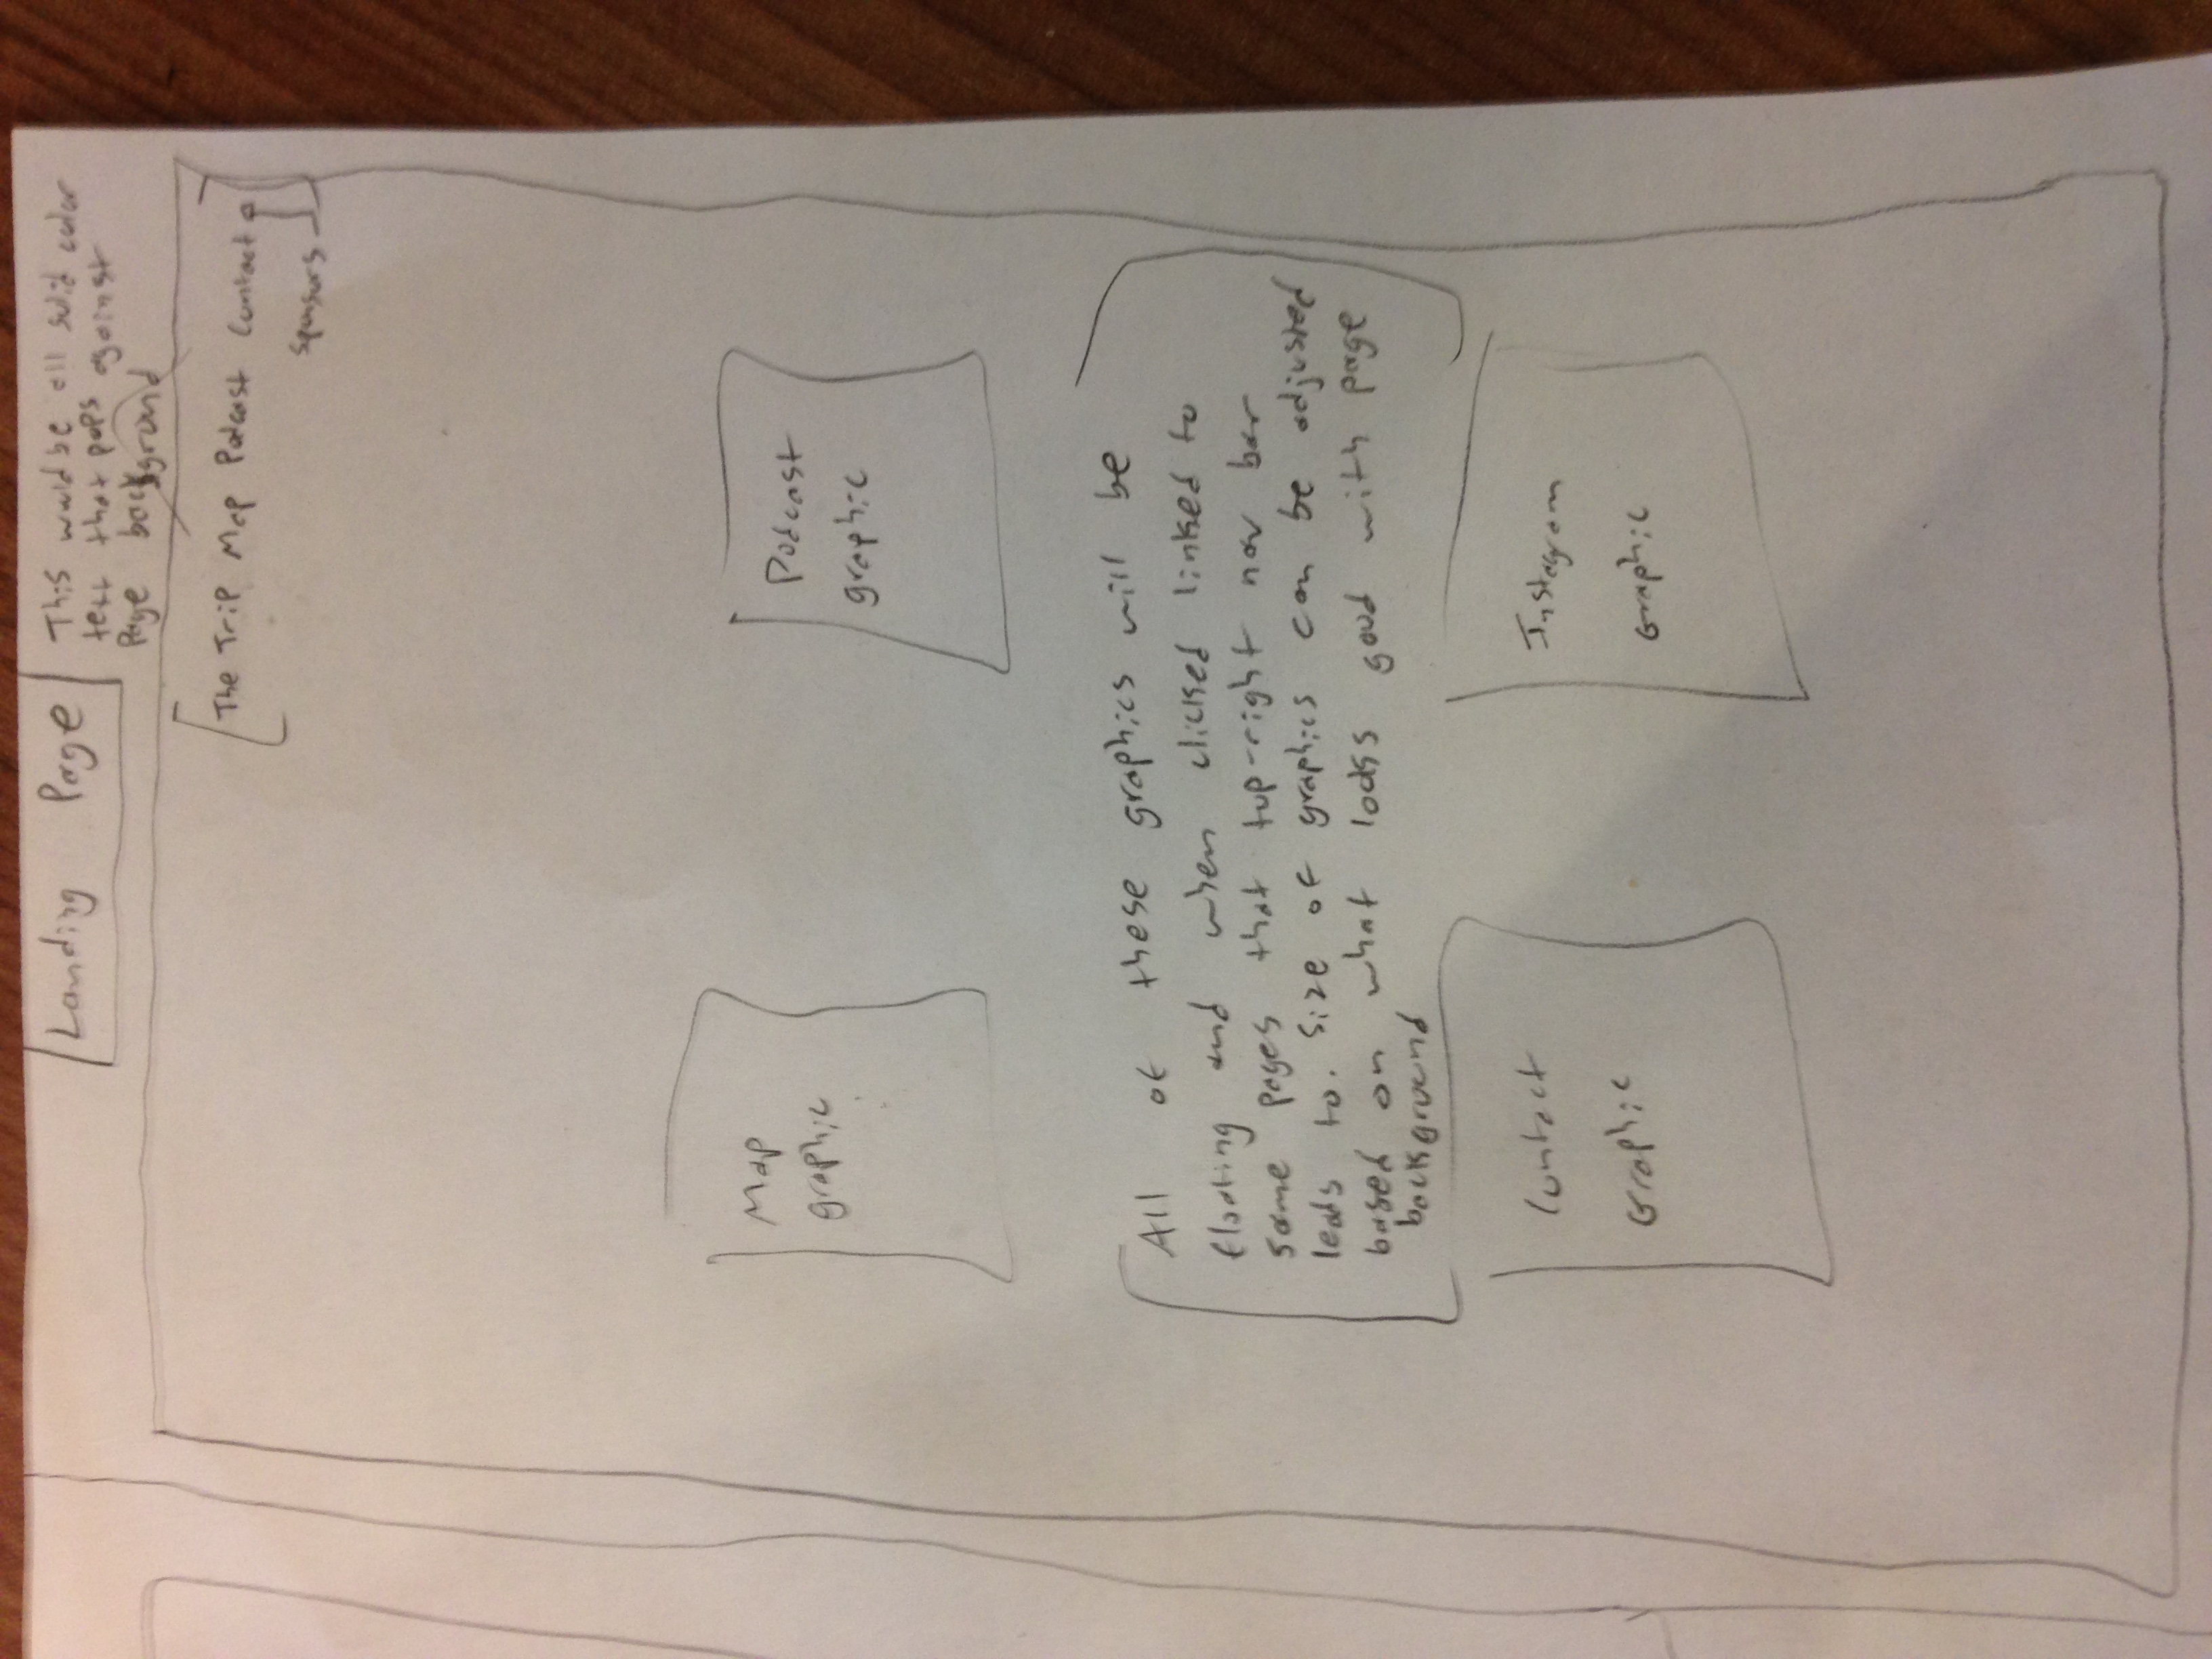 Landing Page
This would be all solid color
text that pops against
Page background
The Trip Map Podcast Contact
sponsors
Map
graphic
Podcast
graphic
All of these graphics will be
floating and when clicked linked to
same pages that top-right nav bar
leads to. Size of graphics can be adjusted
based on what looks good with page
background
Contact
Graphic
Instagram
Graphic